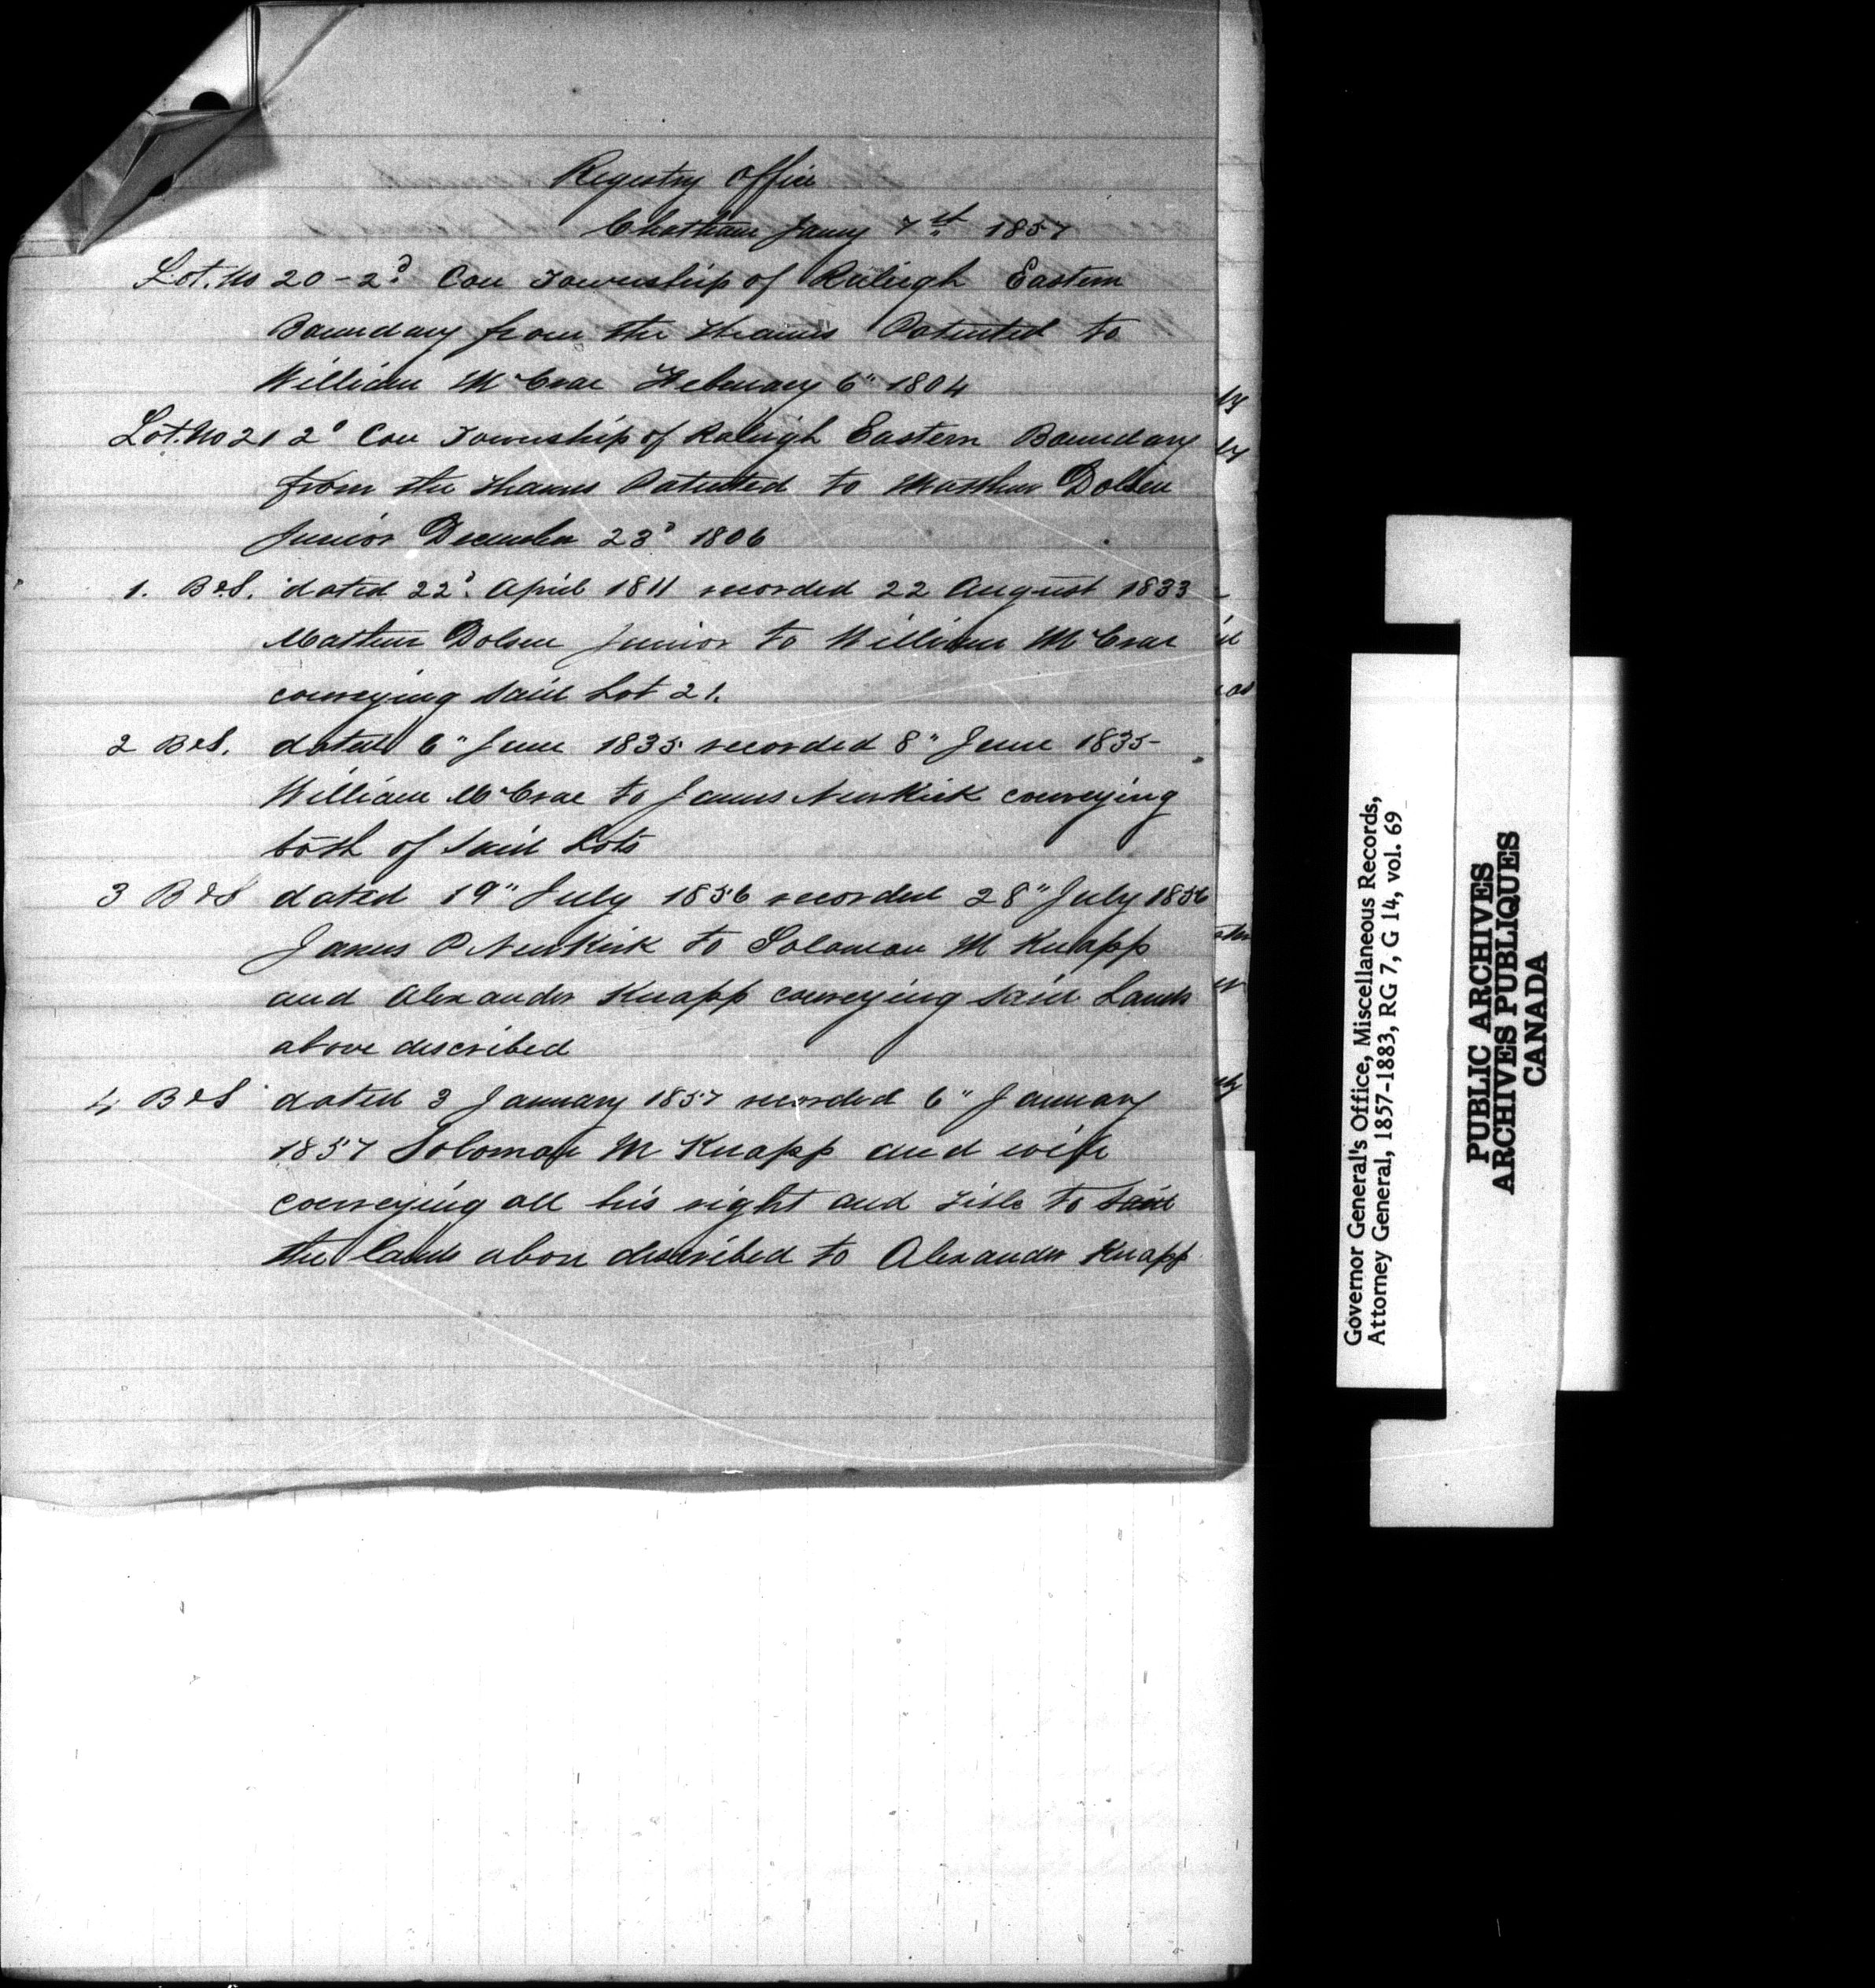 Registry Office
Chatham Jany 7st 1857
Lot. No 20 - 2d Con Township of Raleigh Eastern
Boundary from the Thames Patented to
William McCrae February 6" 1804
Lot. No 21 2d Con Township of Raleigh Eastern Boundary
from the Thames Patented to Matthew Dolsen
Junior December 23d 1806
1. B&S. dated 22d April 1811 recorded 22 August 1833
Matthew Dolsen Junior to William McCrae
conveying said Lot 21.
2 B&S. dated 6" June 1835 recorded 8" June 1835-
William McCrae to James Newkirk conveying
both of said Lots
3 B&S dated 19" July 1856 recorded 28" July 1856
James P Newkirk to Soloman M Knapp
and Alexander Knapp conveying said Lands
above described
4 B&S dated 3 January 1857 recorded 6" January
1857 Soloman M Knapp and wife
conveying all his right and Title to said
the lands above described to Alexander Knapp
Governor General's Office, Miscellaneous Records,
Attorney General, 1857-1883, RG 7, G 14, vol. 69
PUBLIC ARCHIVES
ARCHIVES PUBLIQUES
CANADA